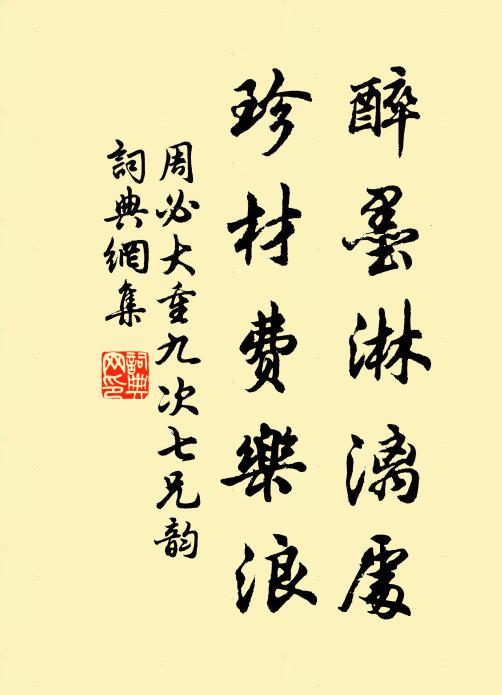 醉墨淋漓處
珍材費樂浪
周必大重九次七兄韵
詞典網集
詞典网印